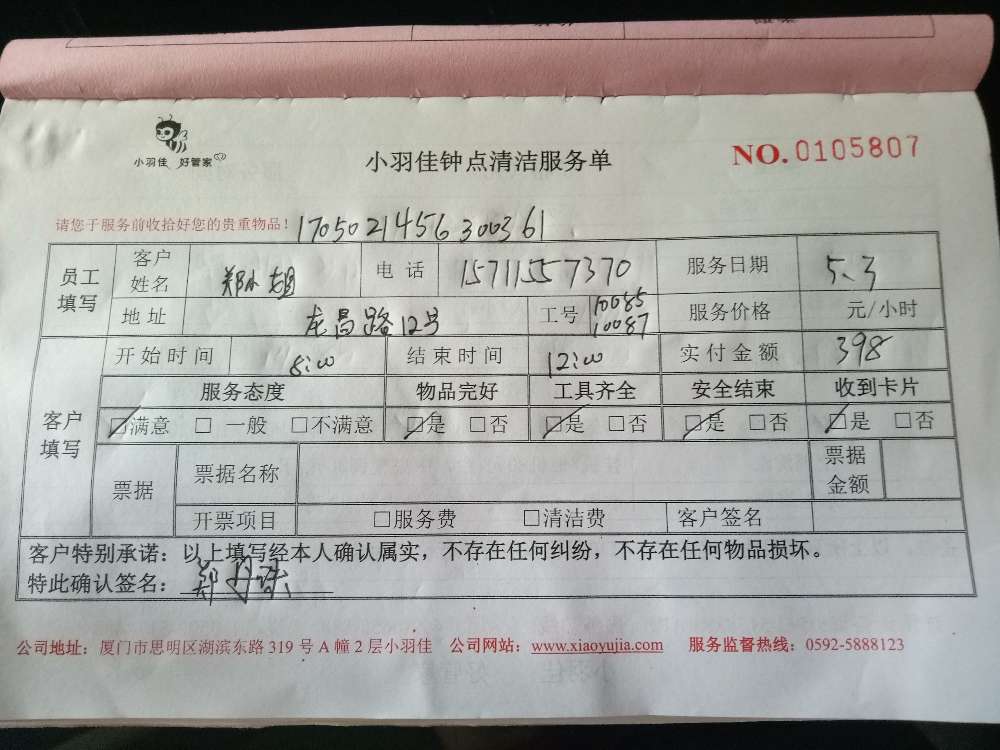 小羽佳 好管家
小羽佳钟点清洁服务单
NO.0105807
请您于服务前收拾好您的贵重物品!
1705021456300361
员工填写 客户姓名 郑小姐 电话 15711557370 服务日期 5.3
地址 龙昌路12号 工号 10085 10087 服务价格 元/小时
客户填写 开始时间 8:00 结束时间 12:00 实付金额 398
服务态度 物品完好 工具齐全 安全结束 收到卡片
☑满意 □一般 □不满意 ☑是 □否 ☑是 □否 ☑是 □否 ☑是 □否
票据 票据名称 票据金额
开票项目 □服务费 □清洁费 客户签名
客户特别承诺：以上填写经本人确认属实，不存在任何纠纷，不存在任何物品损坏。
特此确认签名：郑丹
公司地址：厦门市思明区湖滨东路 319 号 A 幢 2 层小羽佳 公司网站：www.xiaoyujia.com 服务监督热线：0592-5888123